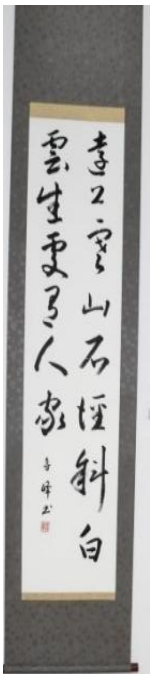 遠上寒山石徑斜白
雲生處有人家
峰书